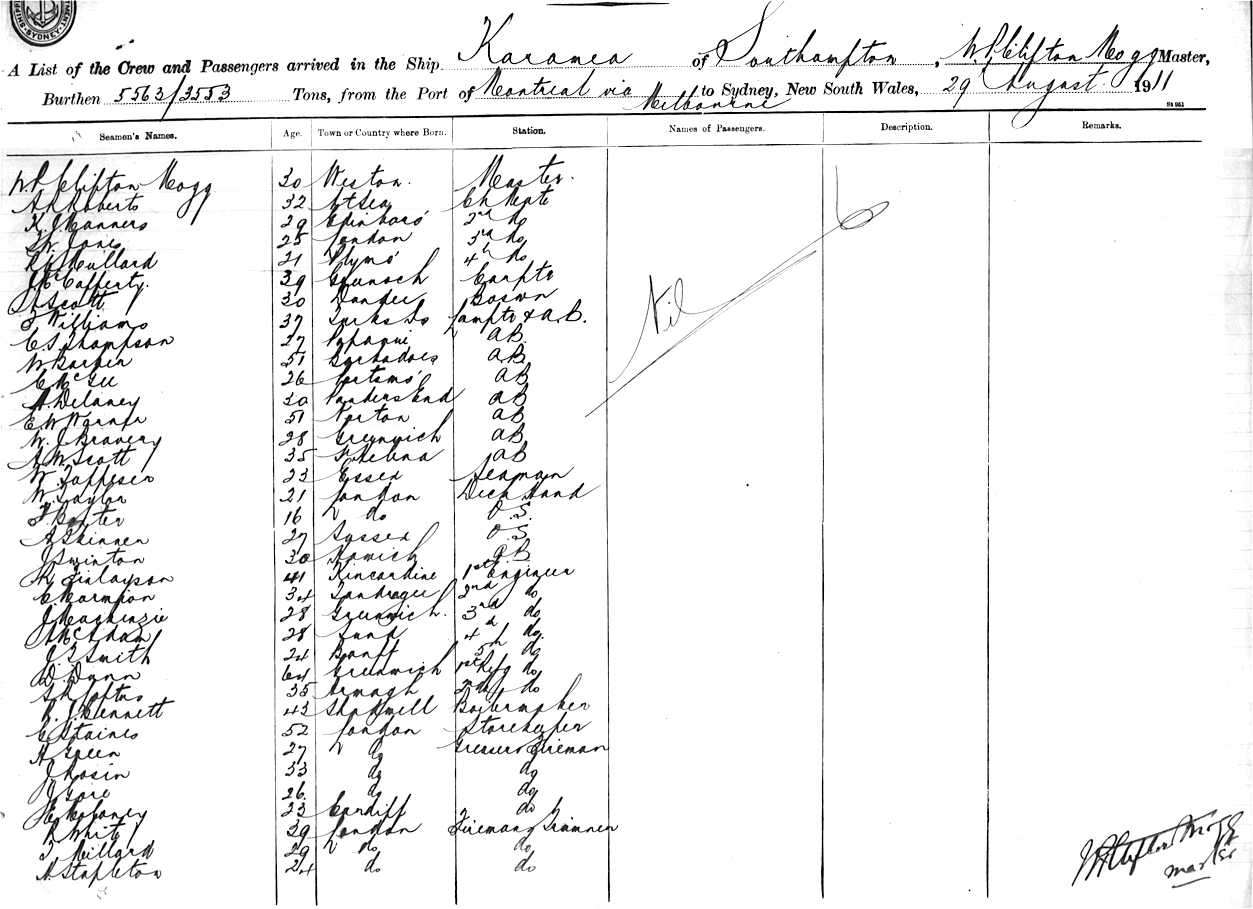 SYDNEY
A List of the Crew and Passengers arrived in the Ship Karamea of Southampton, W.P. Clifton Mogg Master,
Burthen 5563/3553 Tons, from the Port of Montreal via Melbourne to Sydney, New South Wales, 29 August 1911
Seamen's Names. Age. Town or Country where Born. Station. Names of Passengers. Description. Remarks.
W.P. Clifton Mogg 30 Weston. Master.
A.R. Roberts 32 At Sea Ch Mate
K.J. Manners 29 Edinboro' 2nd do
Jones 25 London 3rd do
Mullard 21 Plymo' 4th do
J McCafferty. 39 Greenock Carptr
Scott 30 Dundee Boswn
Williams 37 Turks Is Lamptr & A.B.
C.S. Thompson 27 AB.
W Barker 51 Barbadoes AB
C McGee 26 Portsmo' AB
A. Delaney 30 Ponders End AB
E.W. Warner 51 Norton AB
W. J. Bravery 28 Greenwich AB
A.M. Scott 35 St Helena AB
W. 23 Essex Seaman
W. Taylor 21 London Deck Hand
Baxter 16 do O.S.
A Skinner 27 Sussex O.S
J Swinton 30 Harwich A.B
Finlayson 41 Kincardine 1st Engineer
C Cormpon 34 Tandragee 2nd do
J Mackenzie 28 Greenwich. 3rd do
McAdam 28 4th do.
J. S Smith 24 Banff 5th do
D. Dunn 64 Greenwich 1st Refg do
Loftus 35 Armagh 2nd do
R. J. Bennett 43 Shadwell Boilermaker
C Staines 52 London Storekeeper
A Green 27 do Greaser & Fireman
J Rosin 53 do do
J Gore 26. do do
Mahoney 23 Cardiff do
R White 39 London Fireman & Trimmer
T. Millard 29 do do
A. Stapleton 24 do do
Nil
W P Clifton Mogg
master